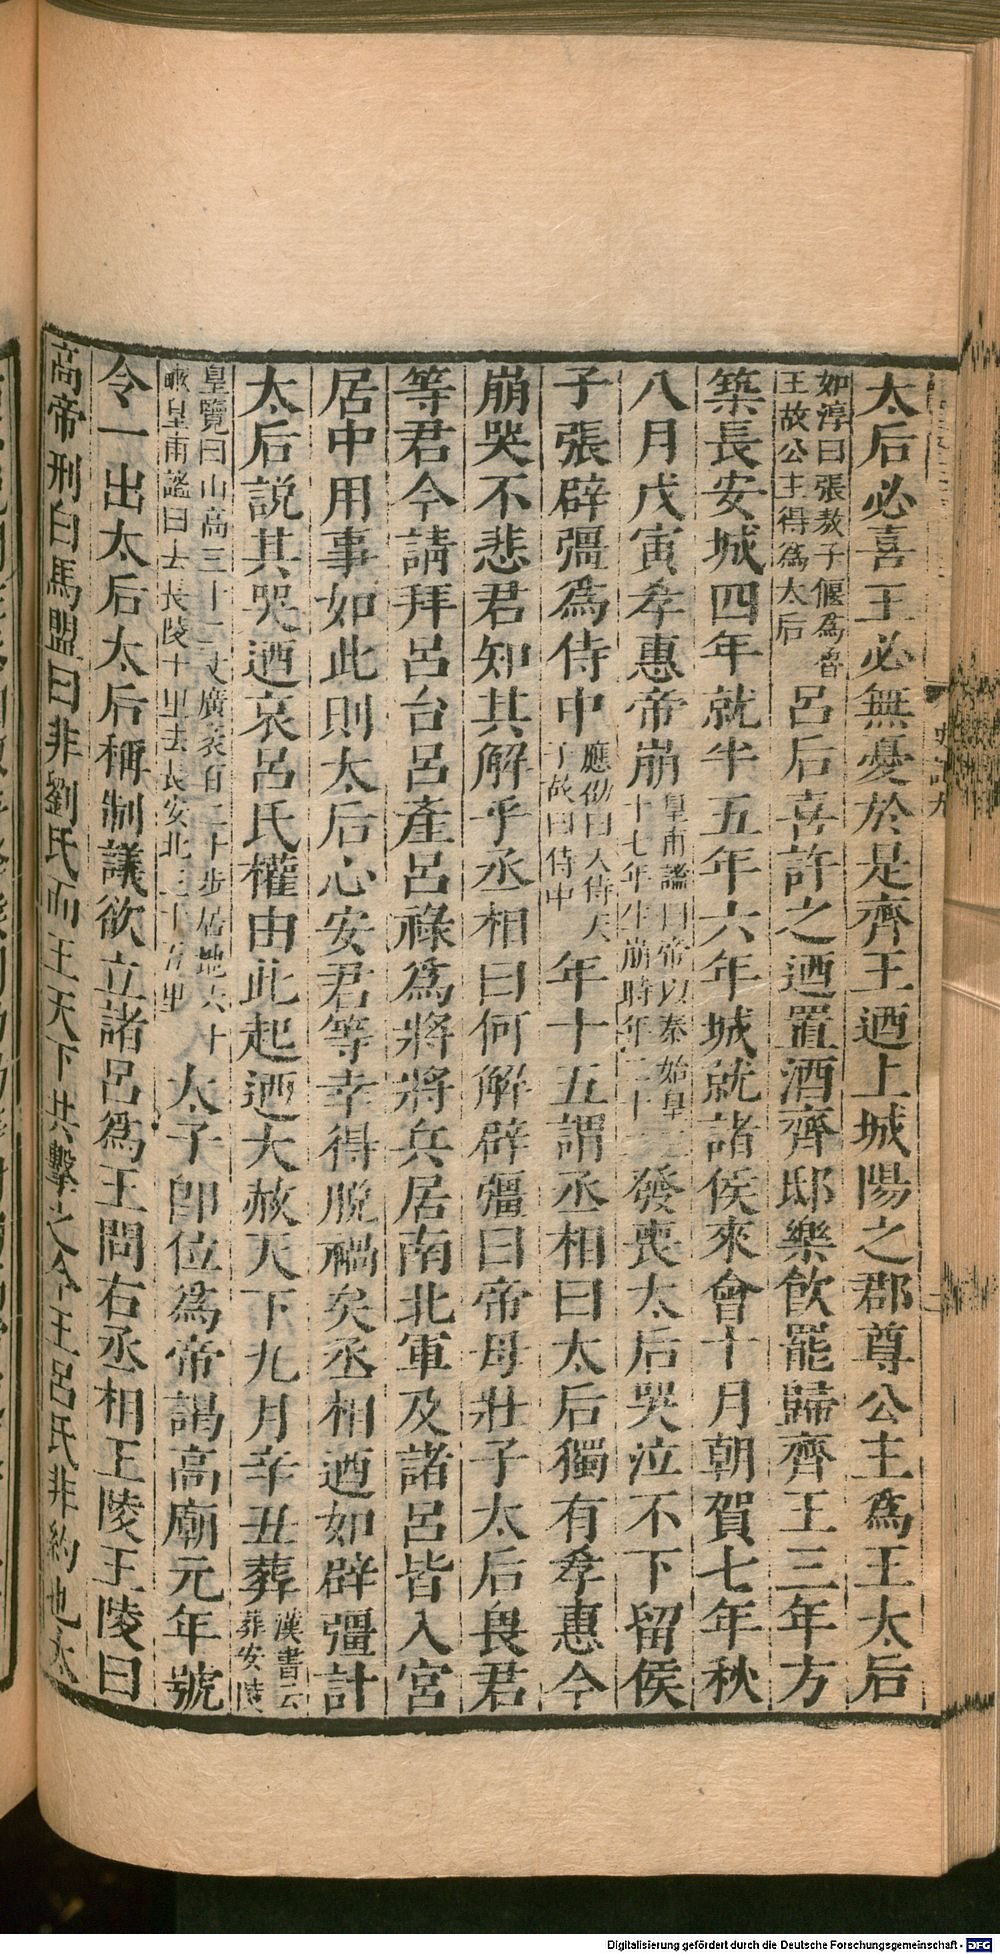 太后必喜王必無憂於是齊王迺上城陽之郡尊公主爲王太后
如淳曰張敖子偃爲魯
王故公主得爲太后
呂后喜許之迺置酒齊邸樂飲罷歸齊王三年方
築長安城四年就半五年六年城就諸侯來會十月朝賀七年秋
八月戊寅孝惠帝崩
皇甫謐曰帝以秦始皇三
十七年生崩時年二十三
發喪太后哭泣不下留侯
子張辟彊爲侍中
應劭曰入侍天
子故曰侍中
年十五謂丞相曰太后獨有孝惠今
崩哭不悲君知其解乎丞相曰何解辟彊曰帝母壯子太后畏君
等君今請拜呂台呂產呂祿爲將將兵居南北軍及諸呂皆入宮
居中用事如此則太后心安君等幸得脫禍矣丞相迺如辟彊計
太后説其哭迺哀呂氏權由此起迺大赦天下九月辛丑葬
漢書云
葬安陵
皇覽曰山高三十二丈廣袤百二十步居地六十
畝皇甫謐曰去長陵十里去長安北三十五里
太子卽位爲帝謁高廟元年號
令一出太后太后稱制議欲立諸呂爲王問右丞相王陵王陵曰
高帝刑白馬盟曰非劉氏而王天下共擊之今王呂氏非約也太
Digitalisierung gefördert durch die Deutsche Forschungsgemeinschaft - DFG